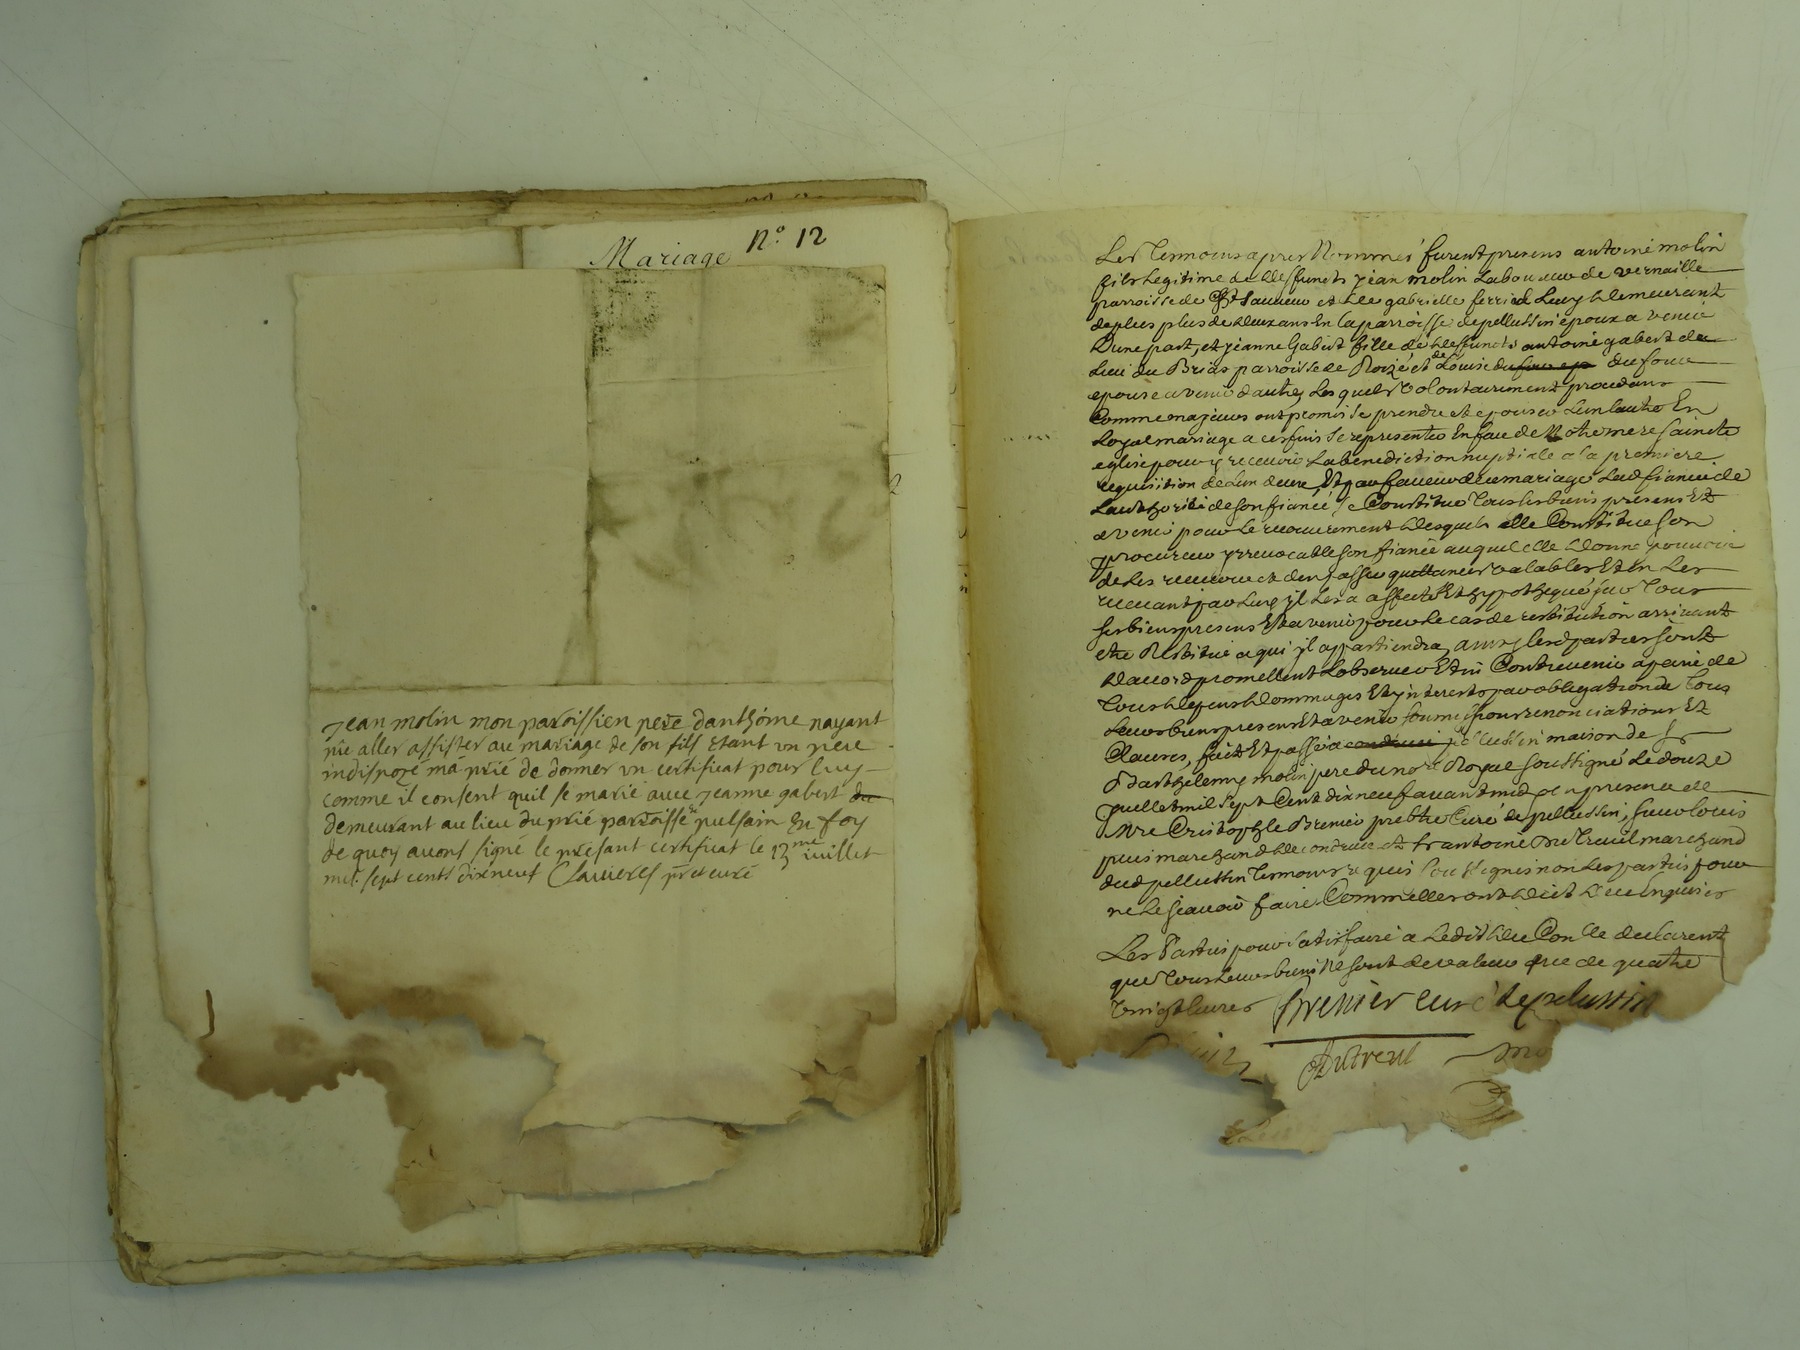 Mariage
N.° 12
Jean molin mon paroissien pere danthoine nayant
pŭ aller assister au mariage de son fils etant un pere
indispozé ma prié de donner un certificat pour luy
comme il consent quil se marie avec jeanne gabert
demeurant au lieu du prié paroisse de pulsain En foy
de quoy avons signé le présant certificat le 13me iuillet
mil sept cents dixneuf Clavieres prêt curé
Les Tesmoins apres Nommés furent presens antoine molin
fils Legitime de deffunets jean molin Laboureur de vernaille
parroisse de St Sauveur et de gabrielle ferriol Luy demeurant
depuis plus de deux ans En la parroisse de pellussin epoux a venir
Dune part, et jeanne Gabert fille de deffuncts antoine gabert du
Lieu du Brias parroisse de Roizé et de Louise du four
epouse a venir dautre, Lesquels volontairement procedans
Comme majeurs ont promis se prendre et epouser Lun Lautre En
Loyal mariage a ces fins se representer En face de Notre mere saincte
eglise pour y recevoir La benediction nuptialle a la premiere
requisition de Lun deux Et par faveur du mariage Lad fiancée de
Lauthorité de son fiancé se Constitue Tous ses biens presens Et
a venir pour Le recouvrement desquels elle Constitue son
procureur yrrevocable son fiancé auquel elle donne pouvoir
de Les recevoir et den passer quittances valables Et en Les
recevant par Luy yl Les a affecté Et hypothequé sur Tous
ses biens presens Et a venir pour Le cas de restitution arrivant
etre Restitué a qui yl appartiendra, ainsy lesd parties sont
daccord promettent Lobserver Et ny Contrevenir a peine de
Tous depens dommages Et ynterests par obligation de Tous
Leurs biens presens Et a venir soumissions renonciations Et
Clauses, fait Et passé a pellussin maison de Sr
Barthelemy molin pere du nore Royal soussigné Le douze
juillet mil sept Cent dix neuf avant midy en presence de
Mre Cristophle Brenier prebtre Curé de pellussin, sieur Louis
puis marchand de condrieu et Sr antoine Dutreuil marchand
dud pellussin Tesmoins requis soussignés non Les parties pour
ne Le sçavoir faire Comme elles ont dict De ce Enquises
Les Parties pour satisfaire a Ledit du Con lle declarent
que Tous Leurs biens Ne sont de valeur que de quatre
vingt livres Brenier curé de pelussin
Dutreul